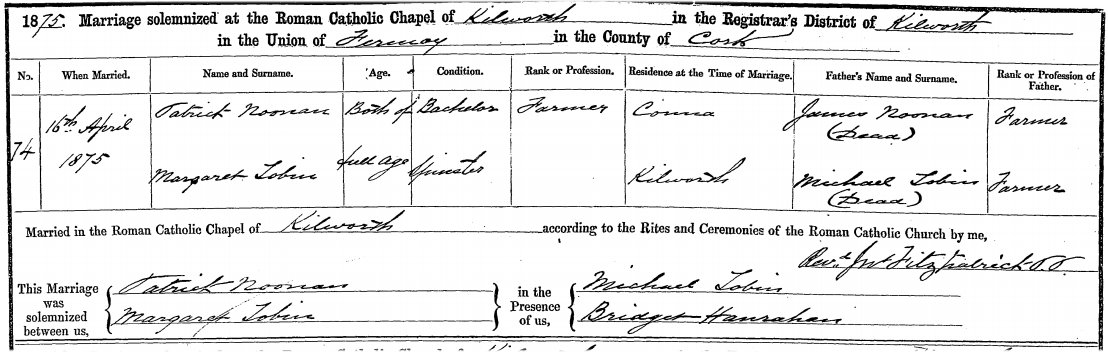 1875. Marriage solemnized at the Roman Catholic Chapel of Kilworth in the Registrar's District of Kilworth
in the Union of Fermoy in the County of Cork
No. When Married. Name and Surname. Age. Condition. Rank or Profession. Residence at the Time of Marriage. Father's Name and Surname. Rank or Profession of Father.
74 16th April 1875 Patrick Noonan Both of full age Bachelor Farmer Conna James Noonan (Dead) Farmer
Margaret Tobin Spinster Kilworth Michael Tobin (Dead) Farmer
Married in the Roman Catholic Chapel of Kilworth according to the Rites and Ceremonies of the Roman Catholic Church by me,
Revd. Jno Fitzpatrick
This Marriage was solemnized between us, Patrick Noonan in the Presence of us, Michael Tobin
Margaret Tobin Bridget Hanrahan